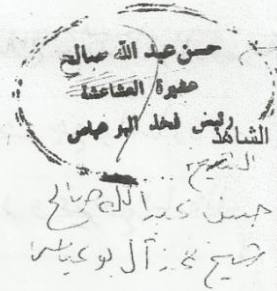 حسن عبد الله صالح
عشيرة المشاهدة
رئيس لفخذ البو عباس
الشاهد
الشيخ
حسن عبد الله صالح
شيخ آل بو عباس